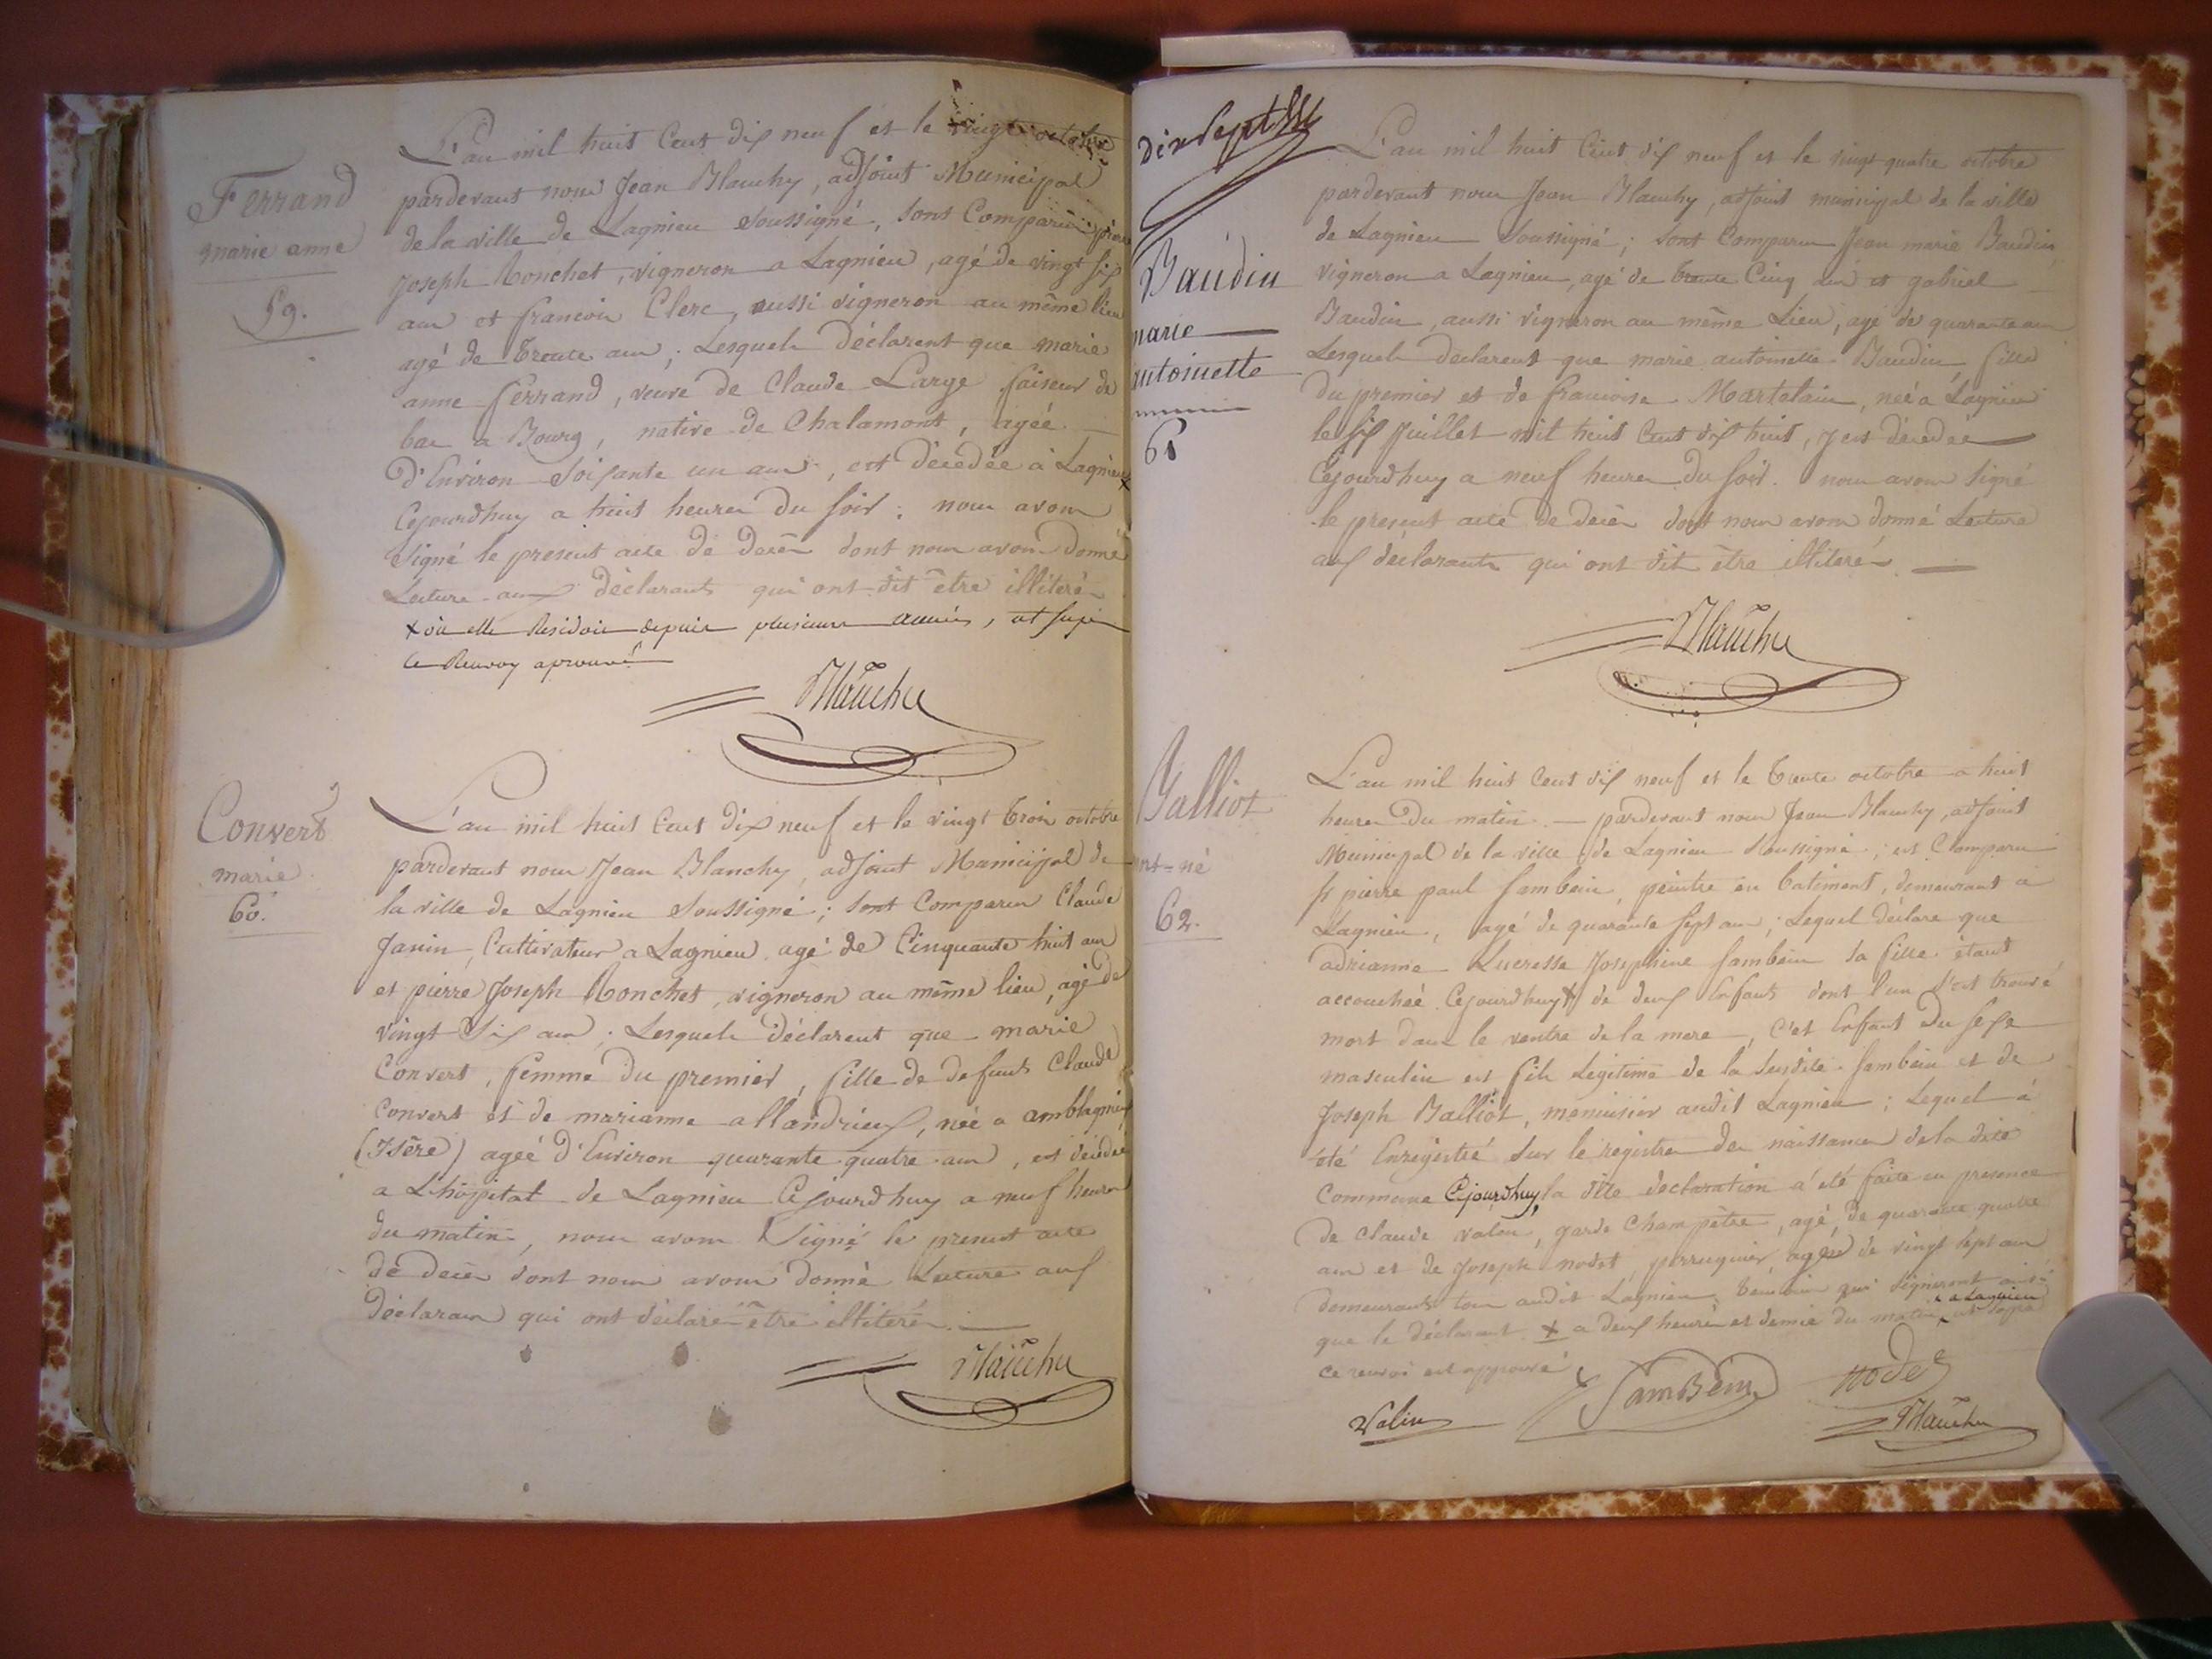 Ferrand
marie anne
59.
L'an mil huit Cent dix neuf et le vingt octobre
pardevant nous Jean Blanchy, adjoint Municipal
de la ville de Lagnieu Soussigné, sont Comparus pierre
Joseph Ronchet, vigneron a Lagnieu, agé de vingt six
ans et francois Clerc, aussi vigneron au même lieu
agé de trente ans; Lesquels déclarent que marie
anne ferrand, veuve de Claude Large faiseur de
bas a Bourg, native de Chalamont, agéé
d'Environ Soixante un ans, est décedée à Lagnieu x
Cejourdhuy a huit heures du soir; nous avons
Signé le present acte de decès dont nous avons donné
Lecture aux déclarants qui ont dit être illiterés
x où elle Residoit depuis plusieurs années,
le Renvoy aprouvé
Blanchy
Convert
marie
60.
L'an mil huit Cent dix neuf et le vingt trois octobre
pardevant nous Jean Blanchy, adjoint Municipal de
la ville de Lagnieu Soussigné; sont Comparus Claude
Janin, Cultivateur a Lagnieu agé de Cinquante huit ans
et pierre Joseph Ronchet, vigneron au même lieu, agé de
vingt Six ans; Lesquels déclarent que marie
Convert, femme du premier, fille de defunts Claude
Convert et de marianne allandrieux, née a amblagnieux
(Isère) agéé d'Environ quarante quatre ans, est décédée
a L'hôpital de Lagnieu Cejourdhuy a neuf heures
du matin, nous avons Signé le present acte
de decès dont nous avons donné Lecture aux
déclarans qui ont déclaré être illiterés.
Blanchy
dix Sept
Baudin
marie
antoinette
61
L'an mil huit Cent dix neuf et le vingt quatre octobre
pardevant nous Jean Blanchy, adjoint municipal de la ville
de Lagnieu Soussigné; sont Comparus Jean marie Baudin
vigneron a Lagnieu, agé de trente Cinq ans et gabriel
Baudin, aussi vigneron au même Lieu, agé de quarante ans
Lesquels declarent que marie antoinette Baudin fille
du premier et de francoise Martelain, née a Lagnieu
le six Juillet mil huit Cent dix huit, y est décedée
Cejourdhuy a neuf heures du soir. nous avons signé
le present acte de decès dont nous avons donné Lecture
aux déclarants qui ont dit être illiterés.
Blanchy
Balliot
mort-né
62.
L'an mil huit Cent dix neuf et le trente octobre a huit
heures du matin pardevant nous Jean Blanchy, adjoint
Municipal de la ville de Lagnieu Soussigné; est Comparu
Sr pierre paul Sambein, peintre en batiment, demeurant a
Lagnieu, agé de quarante sept ans; Lequel déclare que
adrianne Lucresse Josephine Sambein sa fille étant
accouchéé Cejourdhuy x de deux Enfants dont l'un s'est trouvé
mort dans le ventre de la mere, C'et Enfant du sexe
masculin est fils Légitime de la Susdite Sambein et de
Joseph Balliot, menuisier audit Lagnieu; Lequel a
été Enregistré sur le registre des naissances de la dite
Commune Cejourdhuy, la dite declaration a été faite en presence
de Claude valin, garde Champêtre, agé de quarante quatre
ans et de Joseph nodet, perruquier, agé de vingt sept ans
demeurants tous audit Lagnieu, temoins qui signeront ainsi
que le déclarant. x a deux heures et demie du matin, a Lagnieu
ce renvoi est approuvé
Valin
Sambein
nodet
Blanchy